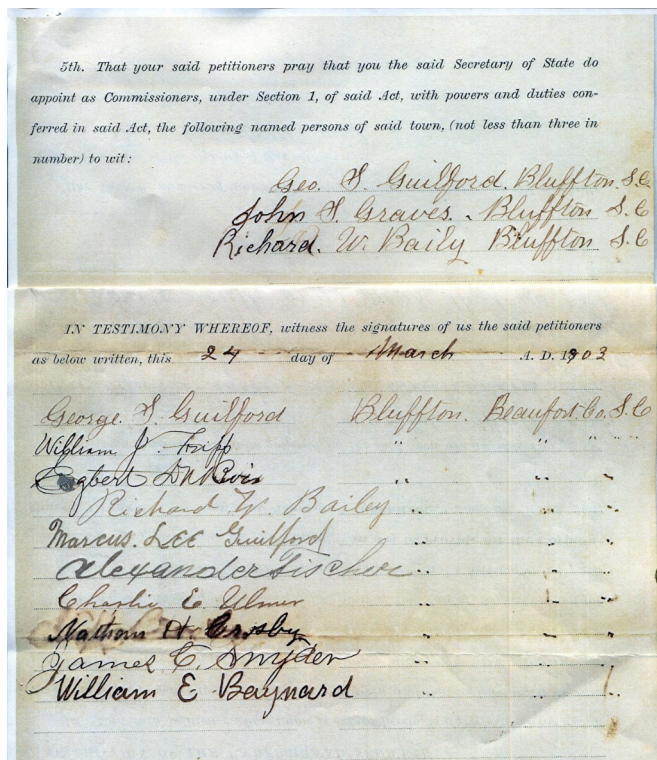 5th. That your said petitioners pray that you the said Secretary of State do
appoint as Commissioners, under Section 1, of said Act, with powers and duties con-
ferred in said Act, the following named persons of said town, (not less than three in
number) to wit:
Geo. S. Guilford, Bluffton, S. C.
John S. Graves. Bluffton S. C
Richard. W. Baily Bluffton S. C
IN TESTIMONY WHEREOF, witness the signatures of us the said petitioners
as below written, this 24 day of March A. D. 1903
George. S. Guilford Bluffton. Beaufort. Co. S. C
William J. Fripp " " "
Egbert " " "
Richard W. Bailey " " "
Marcus. LEE Guilford " " "
Alexander Fischer " " "
Charlie E. Ulmer " " "
Nathan H. Crosby " " "
James C. Snyder " " "
William E Baynard " " "